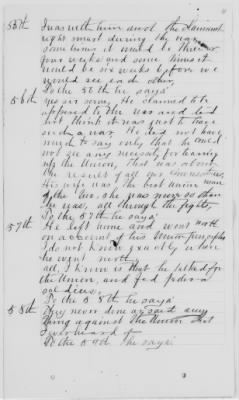 55th I was with him and the claimant
right smart during the war
sometimes it would be three or
four weeks and some times it
would be six weeks before we
would see each other.
To the 56th he says
56th yes sir some, He claimed to be
opposed to the war and did
not think it was just to have
such a war. He did not have
much to say only that he could
not see any necessity for breaking
up the Union, that was about
the result of all our
his wife was the best union man
of the two. she was now so than
he was, all through the fights
To the 57th he says
57th He left home and went north
on account of his Union principles
I do not know exactly where
he went north
all I know is that he talked for
the Union, and fed federal
soldiers.
To the 58th he says
58th They never done or said any
thing against the Union that
I ever heard of
To the 59th he says